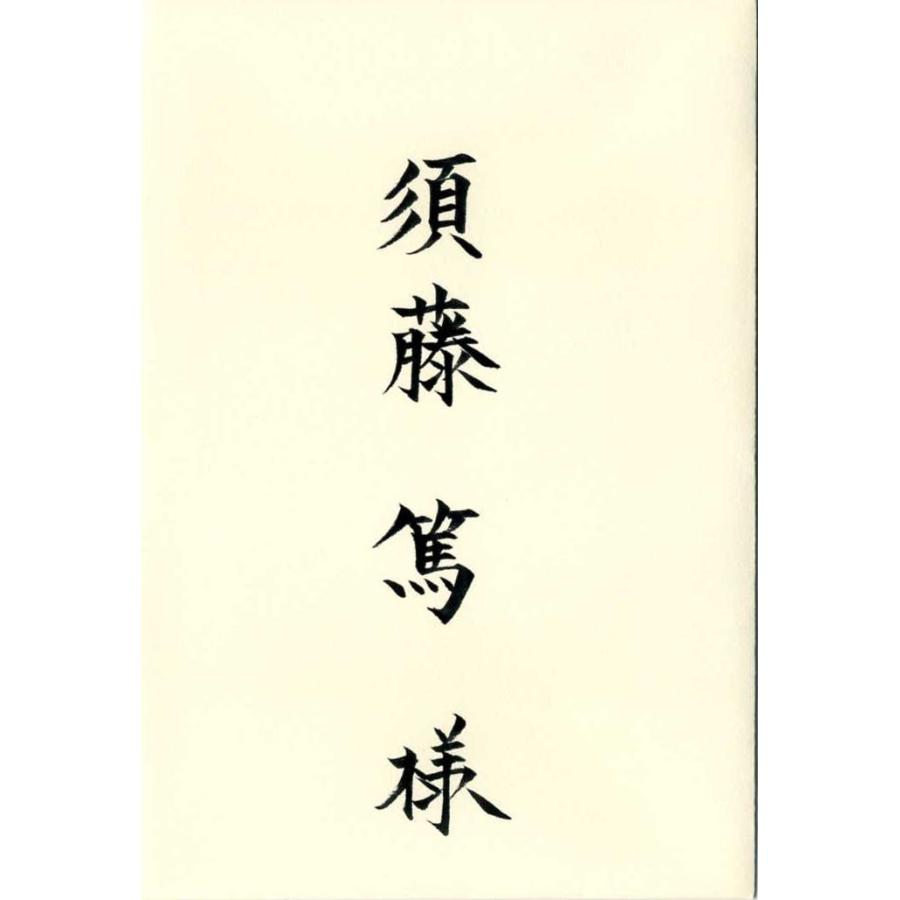 須藤 篤 様